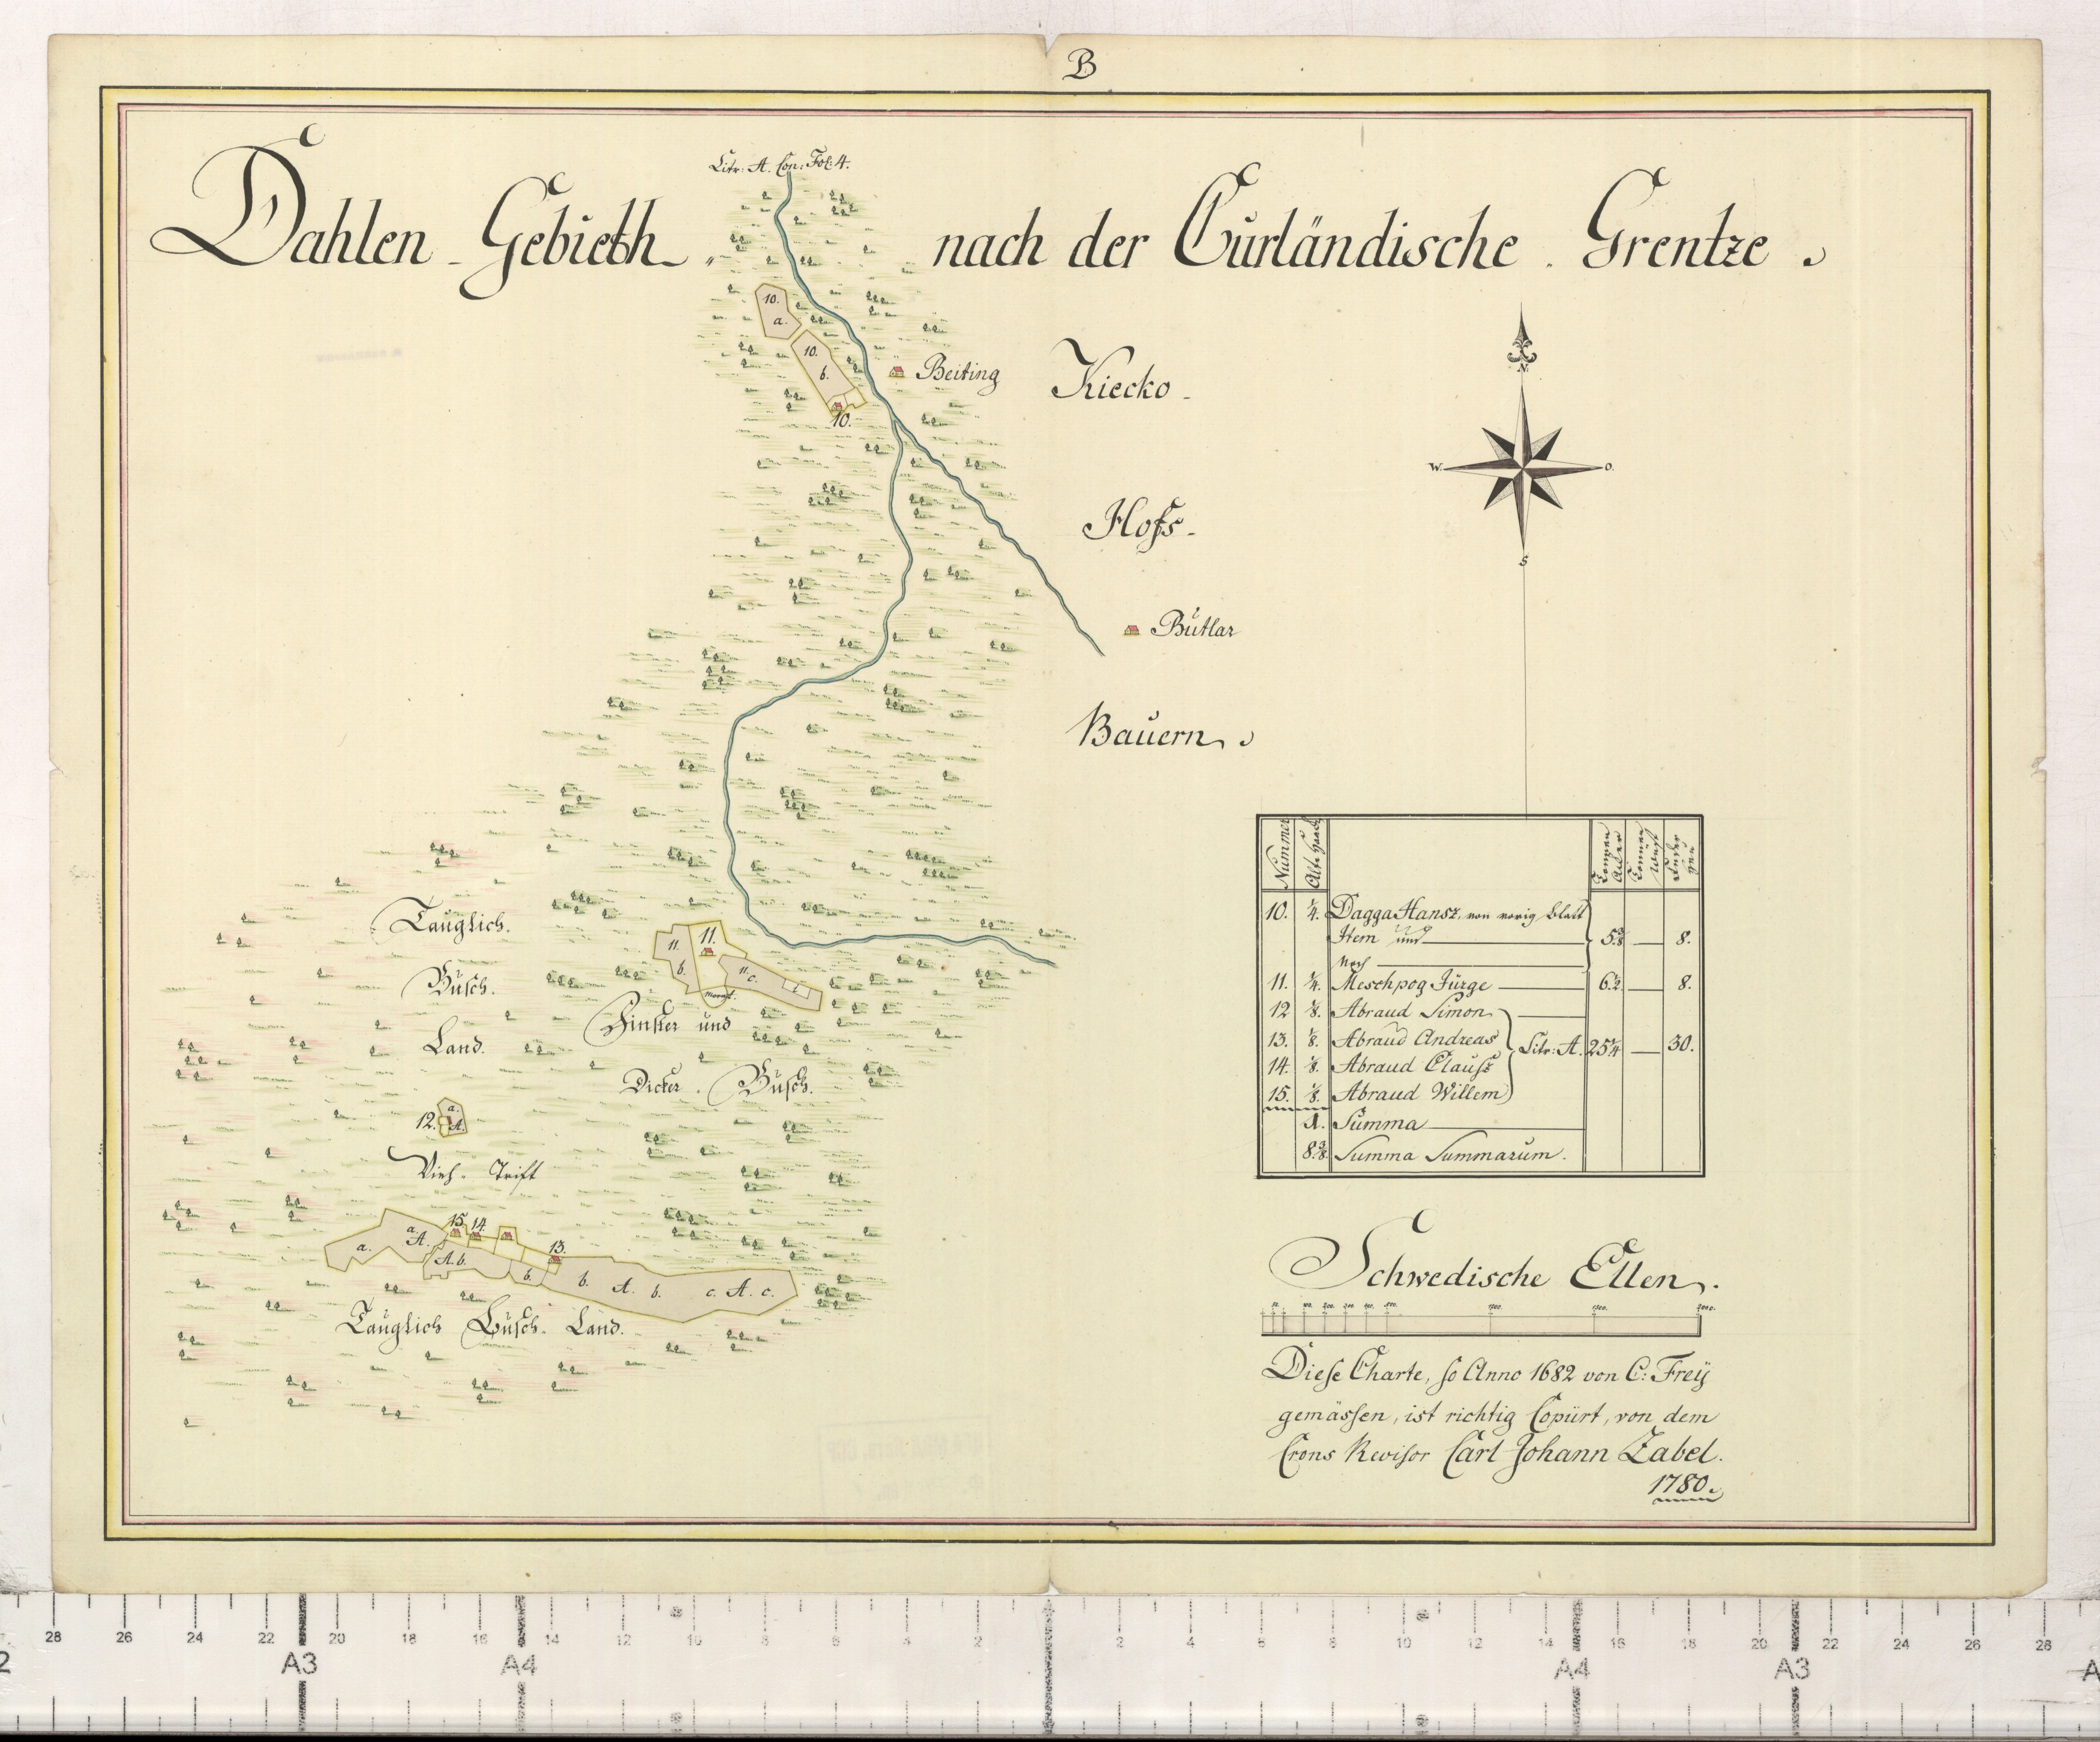 B
Litr: A. Con: Fol: 4.
Dahlen Gebieth nach der Curländische Grentze.
10.
a.
10.
b.
10.
Beiting
Kiecko-
N.
W.
O.
S
Hofs-
Butlar
Bauern.
Tauglich.
Busch.
Land.
11.
11.
b.
11.
c.
Morast.
und
Dicker Busch.
12.
a.
A.
Vieh-Trift
15. 14.
13.
a.
a.
A.
A. b.
b.
b. A. b. c. A. c.
Tauglich Busch-Land.
Nummer
Tonnen
Acker
Tonnen
10. 1/4. Dagga Hansz, von vorig Blatt
Item und 5 3/8 — 8.
Noch
11. 1/4. Meschpog Jürge 6 1/2 — 8.
12 1/8. Abraud Simon
13. 1/8. Abraud Andreas Litr: A. 25 1/4 — 30.
14. 1/8. Abraud Clausz
15. 1/8. Abraud Willem
1. Summa
8 3/8. Summa Summarum.
Schwedische Ellen.
Diese Charte, so Anno 1682 von C: Freÿ
gemässen, ist richtig Copiirt, von dem
Crons Revisor Carl Johann Zabel.
1780.
28 26 24 22 20 18 16 14 12 10 8 6 4 2 2 4 6 8 10 12 14 16 18 20 22 24 26 28
A3 A4 A4 A3